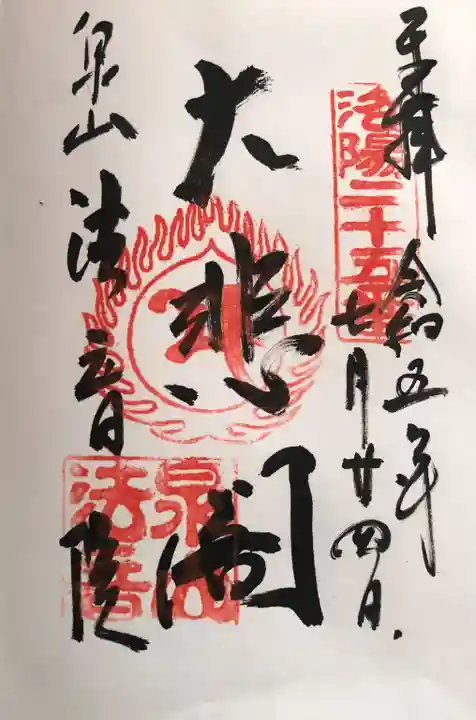 奉拝
令和五年
七月廿四日
洛陽二十五番
大悲閣
泉山 法音院
泉山
法音